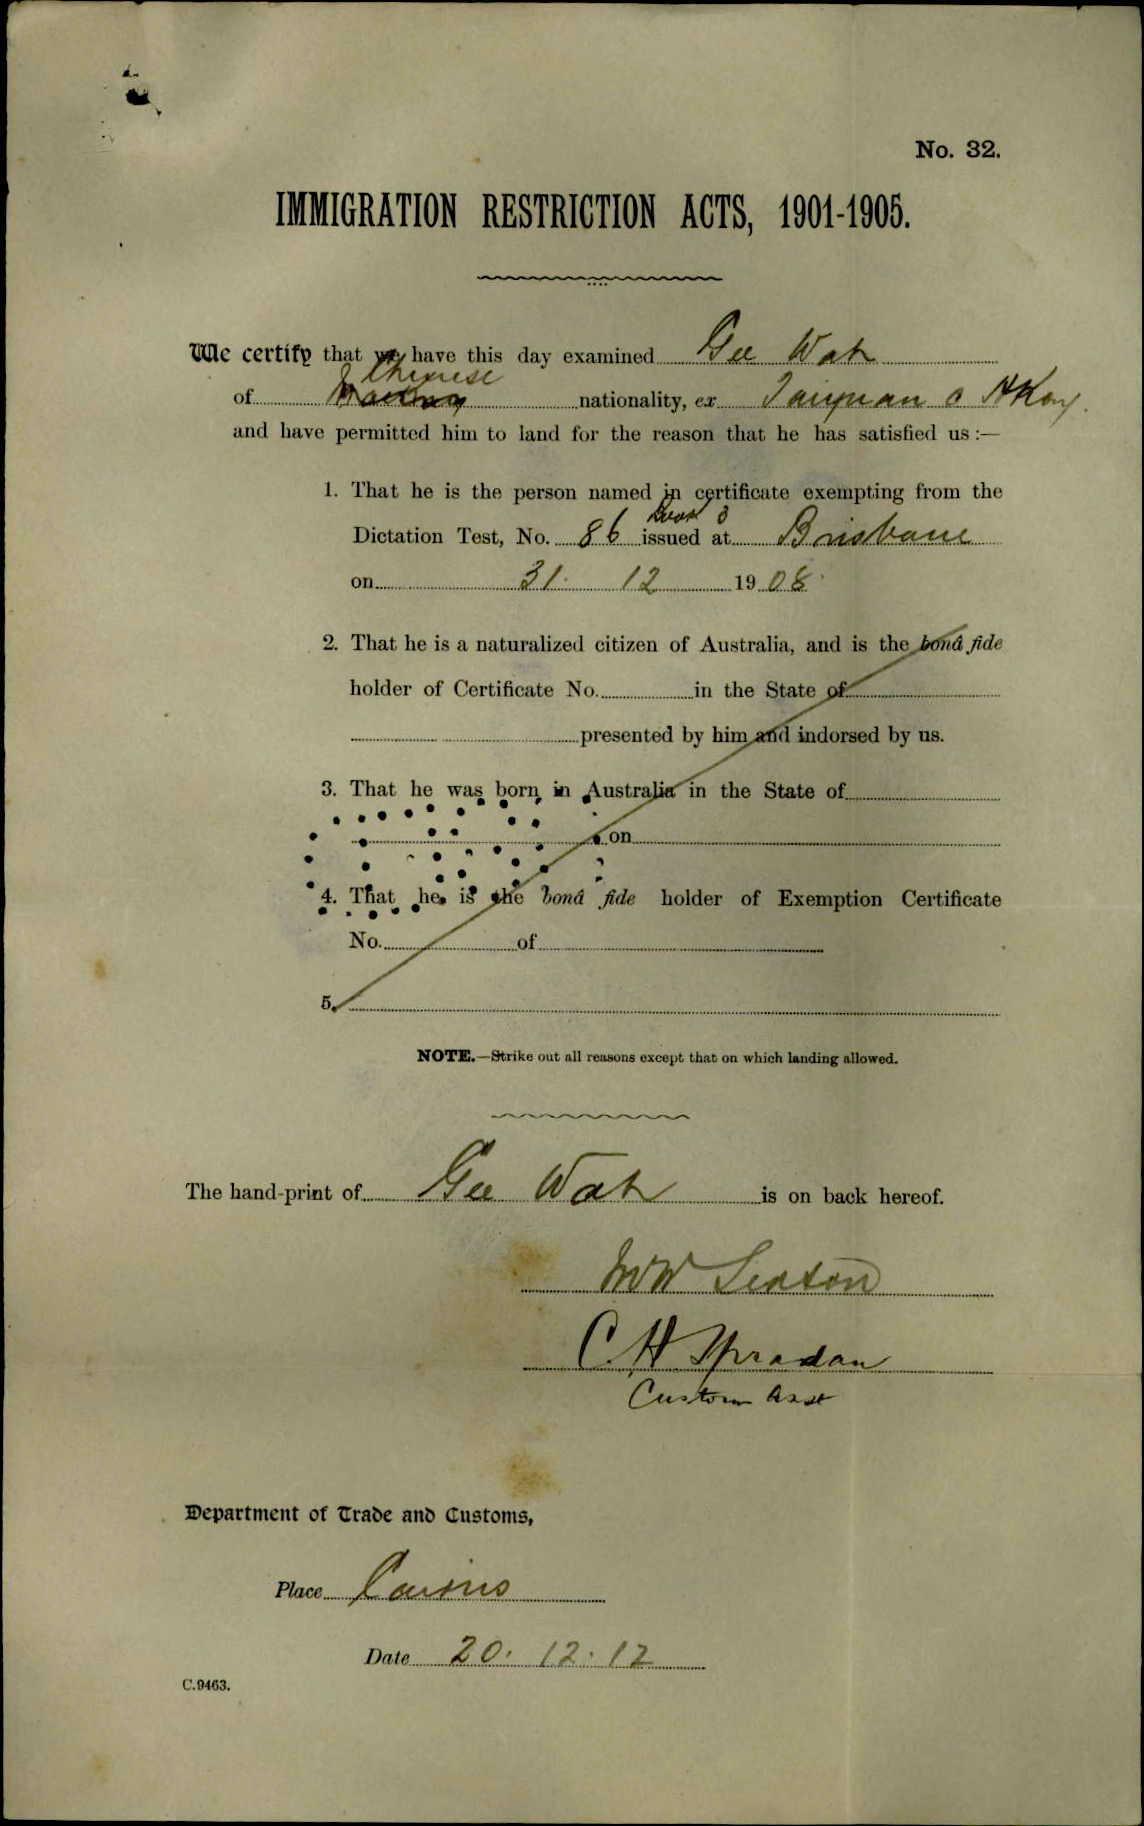 No. 32.
IMMIGRATION RESTRICTION ACTS, 1901-1905.
We certify that we have this day examined Gee Wah
Chinese
of nationality, ex Taiyuan HKong
and have permitted him to land for the reason that he has satisfied us:—
1. That he is the person named in certificate exempting from the
Book 3
Dictation Test, No. 86 issued at Brisbane
on 31. 12 1908.
2. That he is a naturalized citizen of Australia, and is the bonâ fide
holder of Certificate No. in the State of
presented by him and indorsed by us.
3. That he was born in Australia in the State of
on
4. That he is the bonâ fide holder of Exemption Certificate
No. of
5.
NOTE.—Strike out all reasons except that on which landing allowed.
The hand-print of Gee Wah is on back hereof.
C. H.
Custom Asst
Department of Trade and Customs,
Place Cairns
Date 20. 12. 12
C.9463.